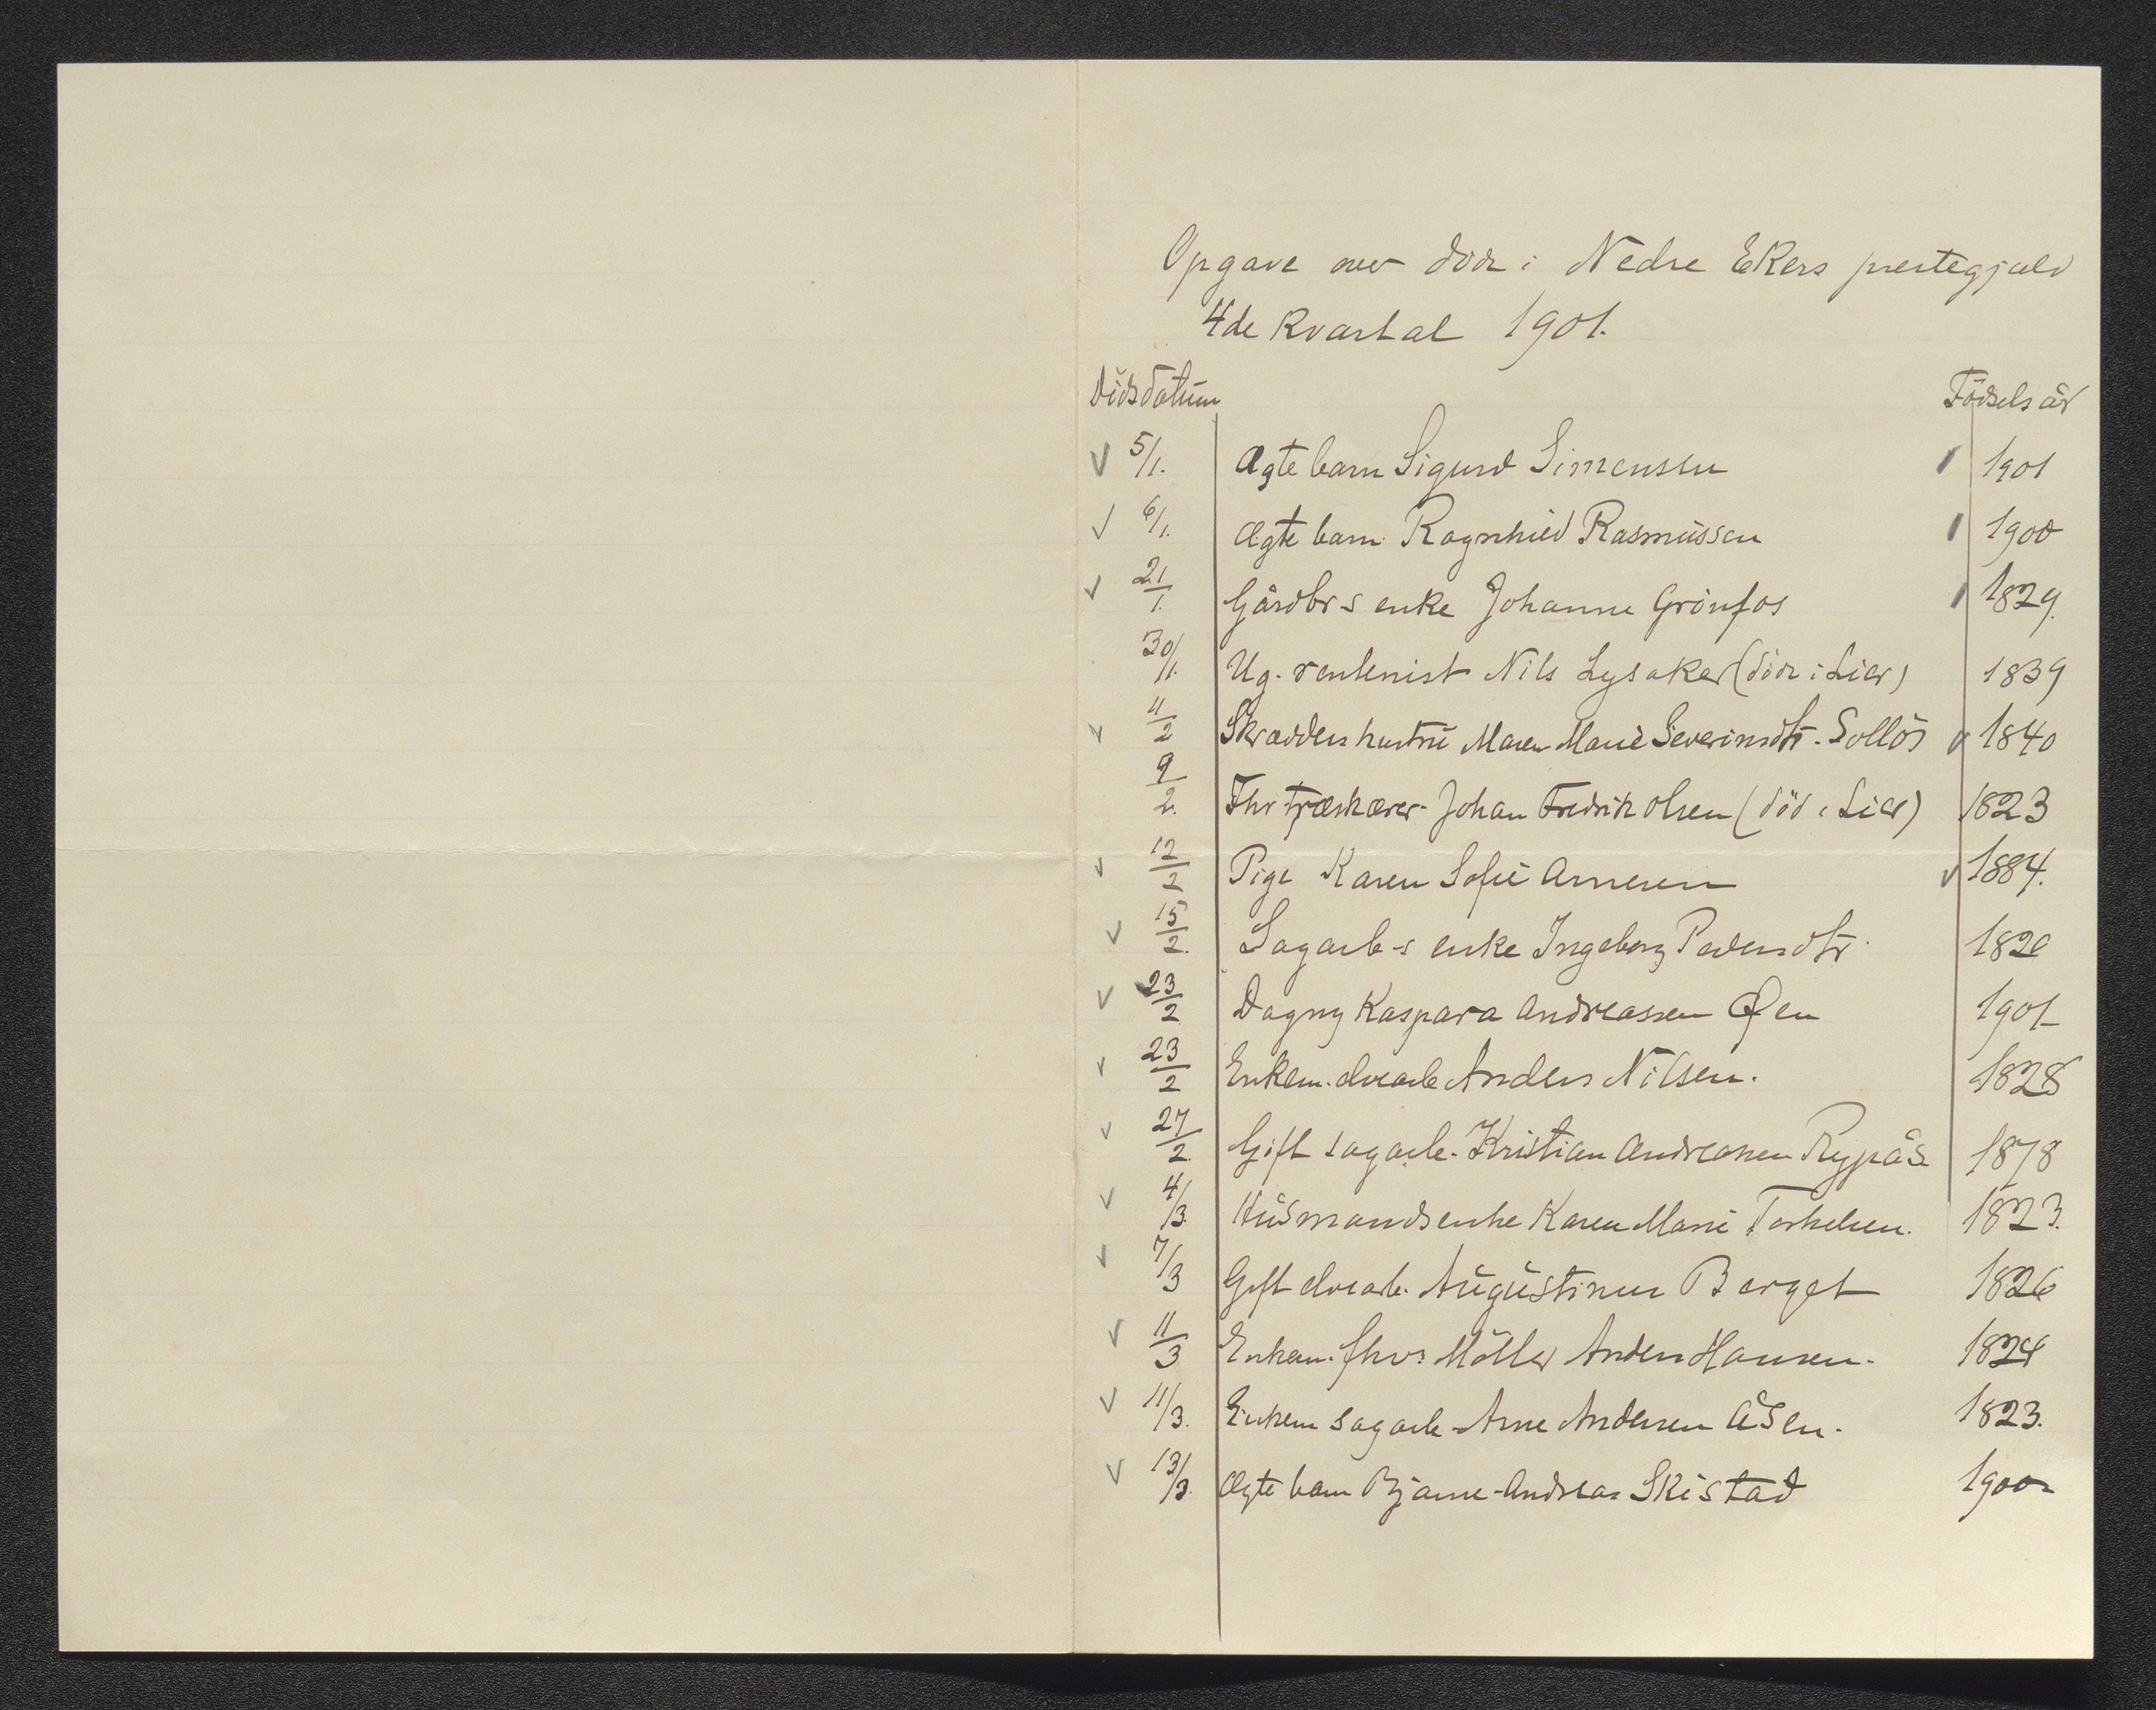 Opgave over döde i Nedre Ekers prestegjæld
4de Kvartal 1901.
Dödsdatum Födselsår
✓ 5/1. Ægte barn Sigurd Simensen 1901
✓ 6/1. Ægte barn Ragnhild Rasmussen 1900
✓ 21/1. Gårdbr-s enke Johanne Grönfos 1829.
30/1. Ug. rentenist Nils Lysaker (död i Lier) 1839
✓ 11/2 Skrædders hustru Maren Marie Severinsdtr. Sollös ✓ 1840
9/2. Fhv træskærer Johan Fredrik Olsen (död i Lier) 1823
✓ 12/2 Pige Karen Sofie Arnesen ✓ 1884.
✓ 15/2. Sagarb-s enke Ingeborg Pedersdtr. 1820
✓ 23/2 Dagny Kaspara Andreassen Øen 1901
✓ 23/2 Enkem. elvearb Anders Nilsen. 1828
✓ 27/2. Gift sagarb. Kristian Andreassen Rypås 1878
✓ 4/3. Husmandsenke Karen Marie Torkelsen. 1823.
✓ 7/3 Gift elvearb. Augustinus Berget 1826
✓ 11/3 Enkem. fhv. Möller Anders Hansen. 1824
✓ 11/3. Enkem sagarb Arne Andersen Åsen. 1823.
✓ 13/3. Ægte barn Bjarne Andreas Skistad 1900